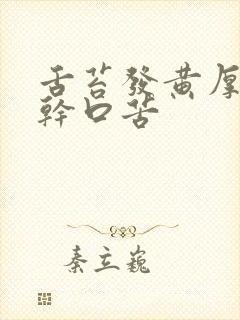 舌苔發黃厚
幹口苦
秦立巍